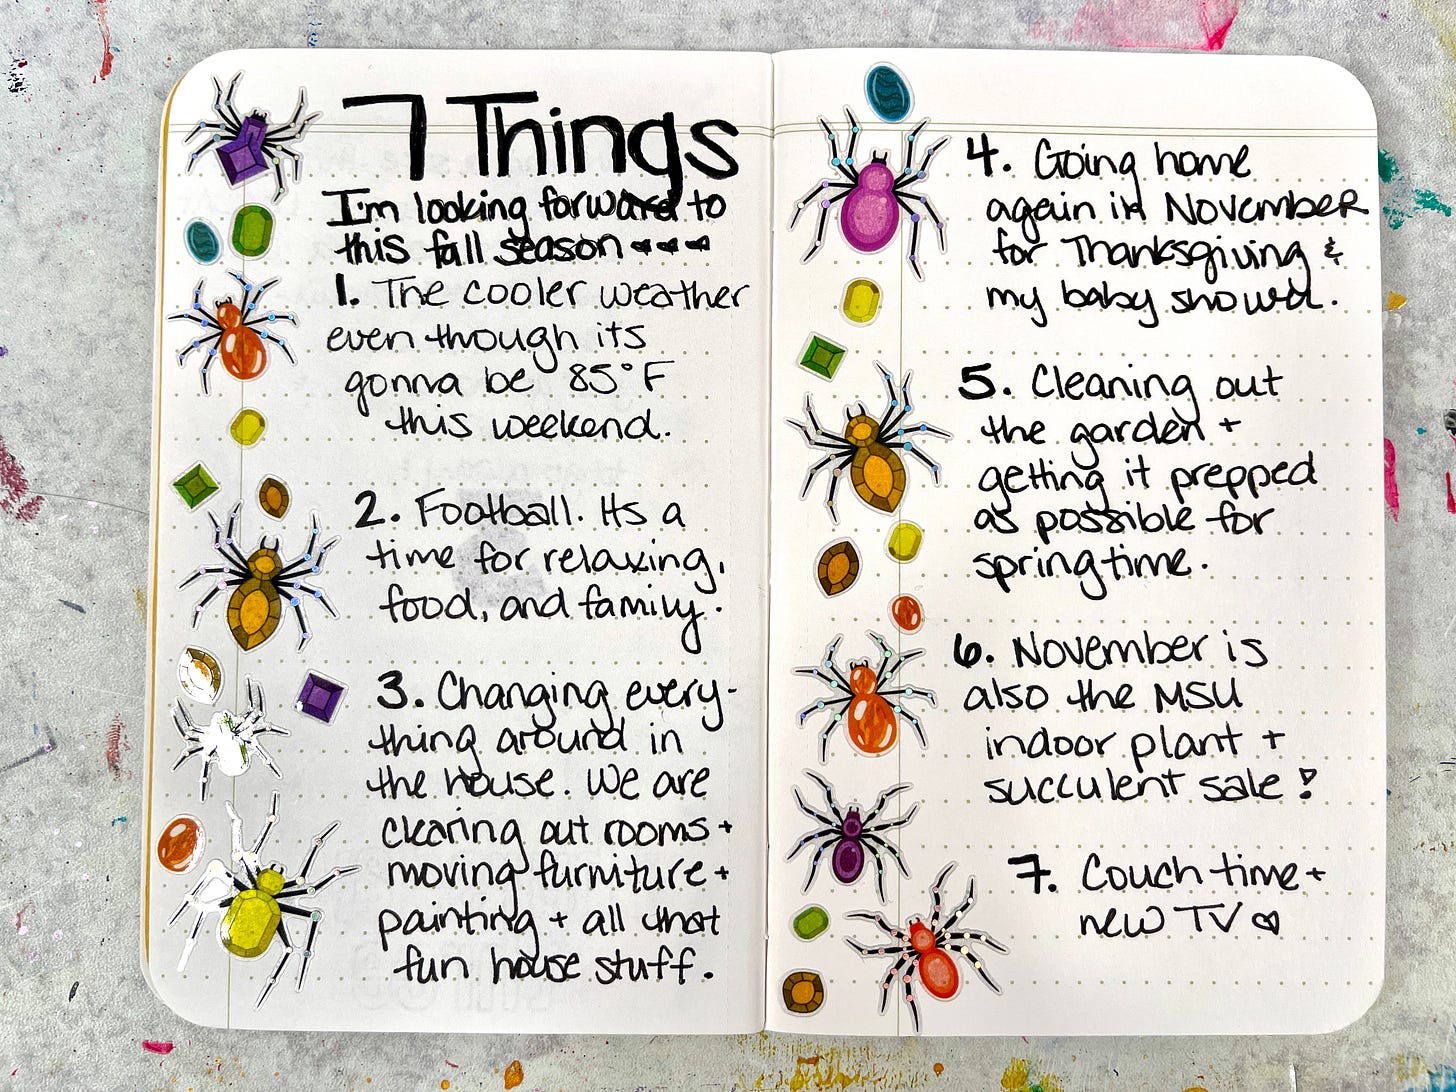 7 Things
I'm looking forward to
this fall season
1. The cooler weather
even though its
gonna be 85°F
this weekend.
2. Football. Its a
time for relaxing,
food, and family.
3. Changing every-
thing around in
the house. We are
clearing out rooms +
moving furniture +
painting + all that
fun house stuff.
4. Going home
again in November
for Thanksgiving &
my baby shower.
5. Cleaning out
the garden +
getting it prepped
as possible for
springtime.
6. November is
also the MSU
indoor plant +
succulent sale!
7. Couch time +
new TV ♡